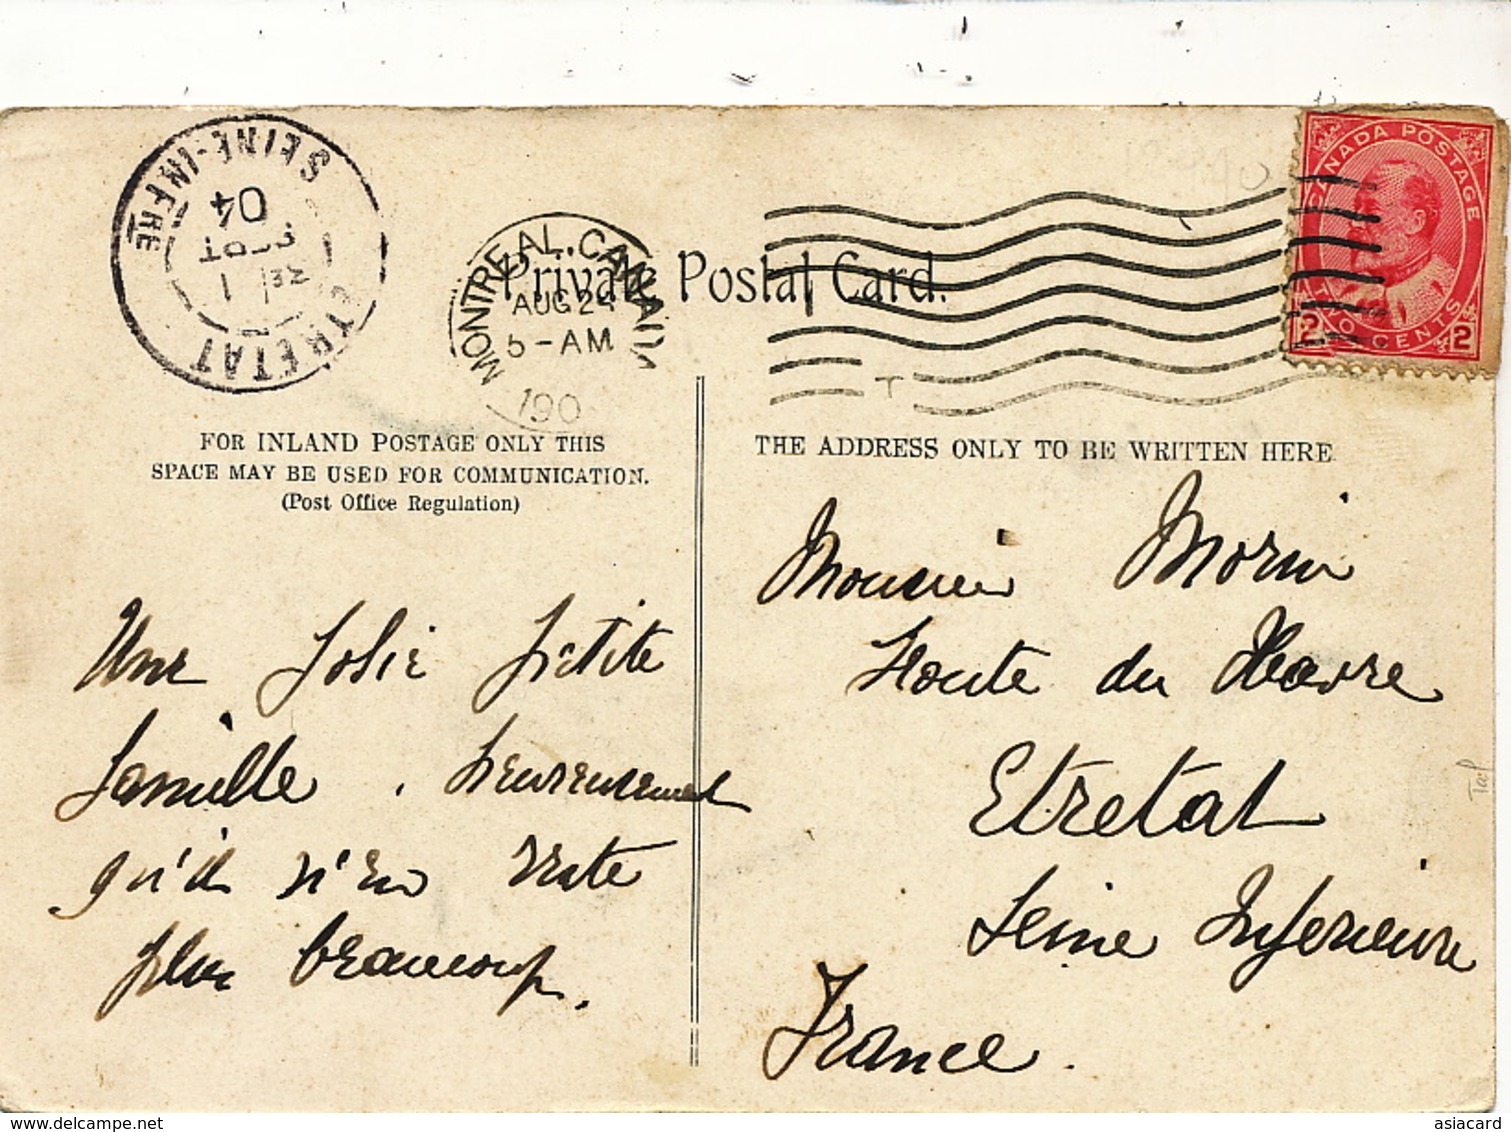 SEINE-INFRE
ETRETAT
1
SEPT
04
MONTREAL, CANADA
AUG 24
5-AM
190
CANADA POSTAGE
2 TWO CENTS 2
Private Postal Card.
T
FOR INLAND POSTAGE ONLY THIS
SPACE MAY BE USED FOR COMMUNICATION.
(Post Office Regulation)
THE ADDRESS ONLY TO BE WRITTEN HERE
Une jolie petite
famille. heureusement
qu'il n'en reste
plus beaucoup.
Monsieur Morin
Route du Havre
Etretat
Seine Inferieure
France.
www.delcampe.net
asiacard